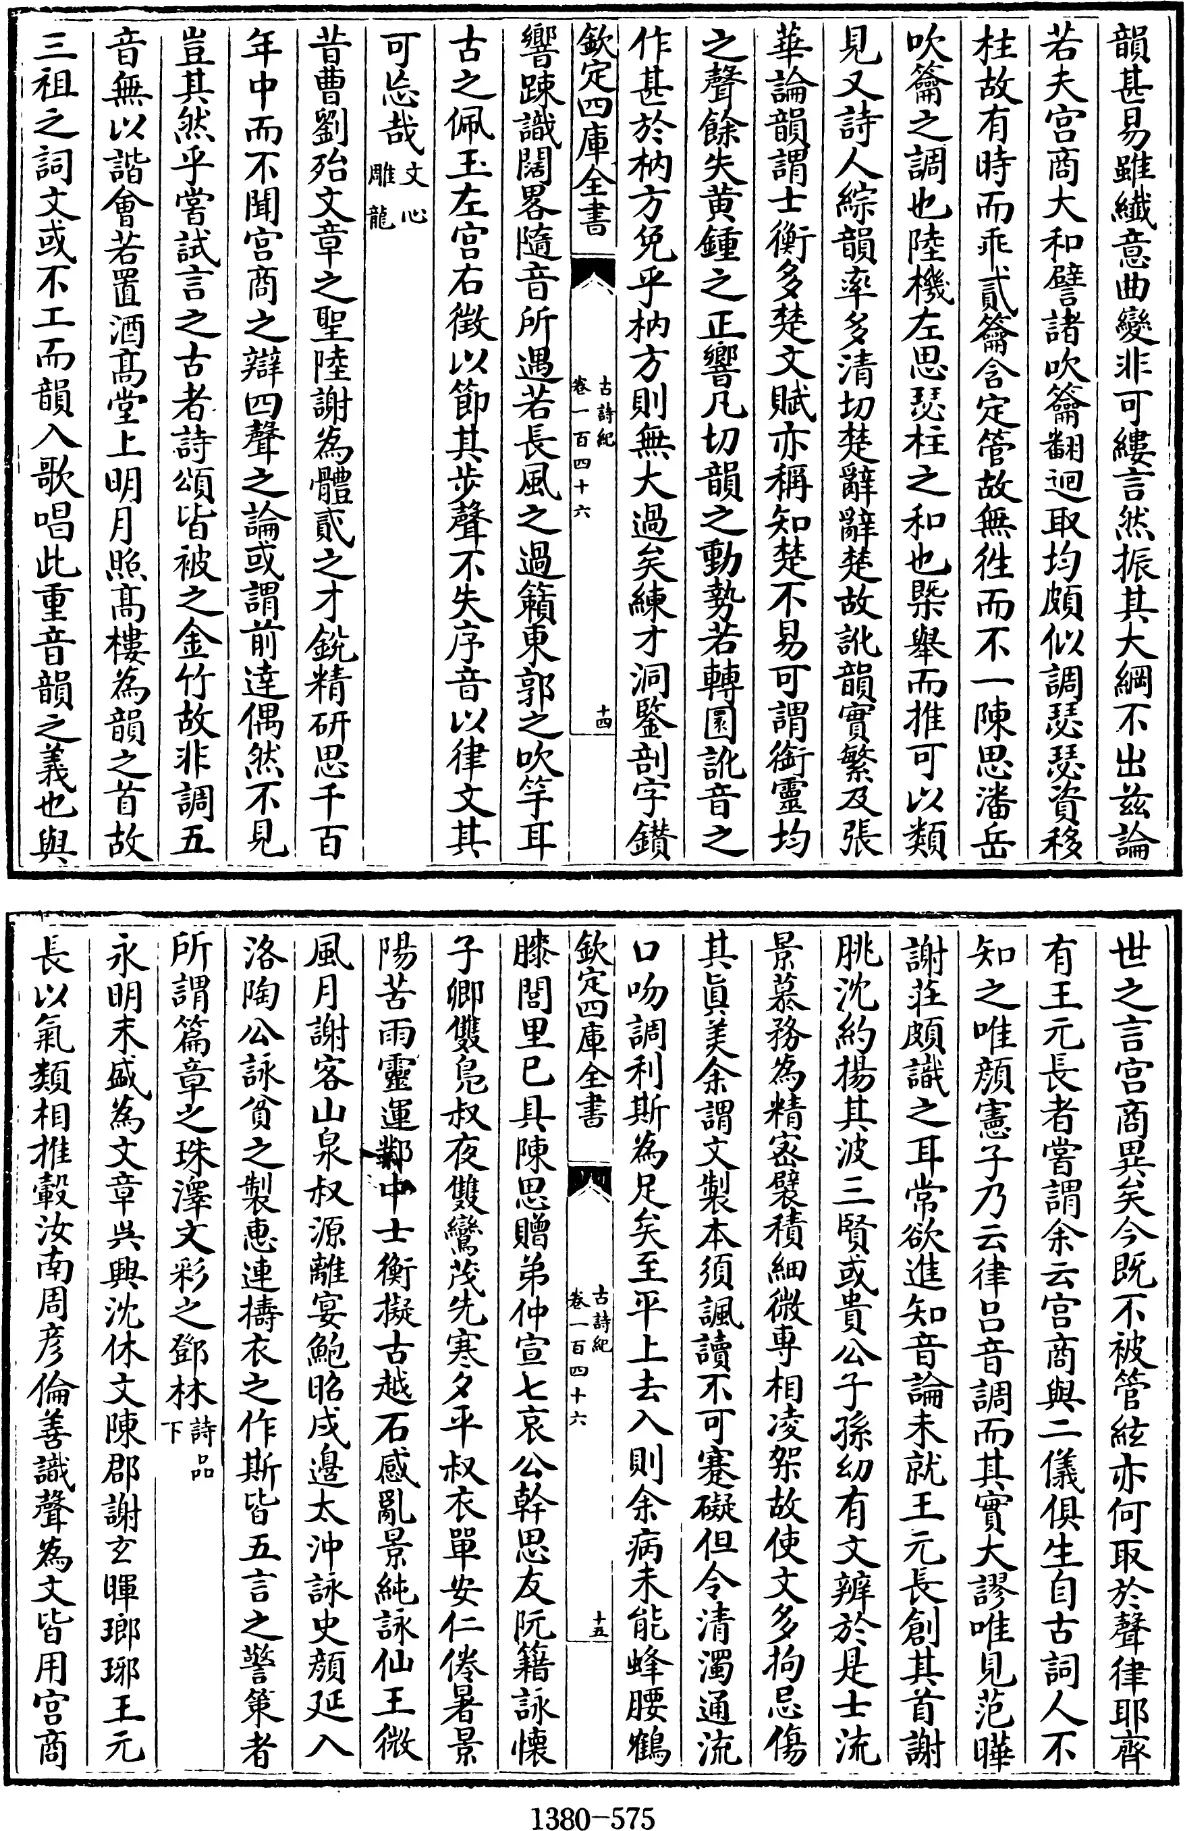 韻甚易雖纖意曲變非可縷言然振其大綱不出兹論
若夫宫商大和譬諸吹籥翻迴取均頗似調瑟瑟資移
柱故有時而乖貳籥含定管故無徃而不一陳思潘岳
吹籥之調也陸機左思瑟柱之和也槩舉而推可以類
見又詩人綜韻率多清切楚辭辭楚故訛韻實繁及張
華論韻謂士衡多楚文賦亦稱知楚不易可謂銜靈均
之聲餘失黄鍾之正響凡切韻之動勢若轉圜訛音之
作甚於枘方免乎枘方則無大過矣練才洞鑒剖字鑚
欽定四庫全書
古詩紀
卷一百四十六
十四
響踈識闊畧隨音所遇若長風之過籟東郭之吹竽耳
古之佩玉左宫右徴以節其步聲不失序音以律文其
可忘哉文心雕龍
昔曹劉殆文章之聖陸謝為體貳之才鋭精研思千百
年中而不聞宫商之辯四聲之論或謂前逹偶然不見
豈其然乎嘗試言之古者詩頌皆被之金竹故非調五
音無以諧會若置酒髙堂上明月照髙樓為韻之首故
三祖之詞文或不工而韻入歌唱此重音韻之義也與
世之言宫商異矣今既不被管絃亦何取於聲律耶齊
有王元長者嘗謂余云宫商與二儀俱生自古詞人不
知之唯顔憲子乃云律吕音調而其實大謬唯見范曄
謝莊頗識之耳常欲進知音論未就王元長創其首謝
朓沈約揚其波三賢或貴公子孫幼有文辨於是士流
景慕務為精宻襞積細微専相凌架故使文多拘忌傷
其眞美余謂文製本須諷讀不可蹇礙但令清濁通流
口吻調利斯為足矣至平上去入則余病未能蜂腰鶴
欽定四庫全書
古詩紀
卷一百四十六
十五
膝閭里已具陳思贈弟仲宣七哀公幹思友阮籍詠懐
子卿雙鳬叔夜雙鸞茂先寒夕平叔衣單安仁倦暑景
陽苦雨靈運鄴中士衡擬古越石感亂景純詠仙王微
風月謝客山泉叔源離宴鮑昭戍邉太沖詠史顔延入
洛陶公詠貧之製惠連擣衣之作斯皆五言之警策者
所謂篇章之珠澤文彩之鄧林詩品下
永明末盛為文章呉興沈休文陳郡謝玄暉瑯琊王元
長以氣類相推轂汝南周彦倫善識聲為文皆用宫商
1380-575